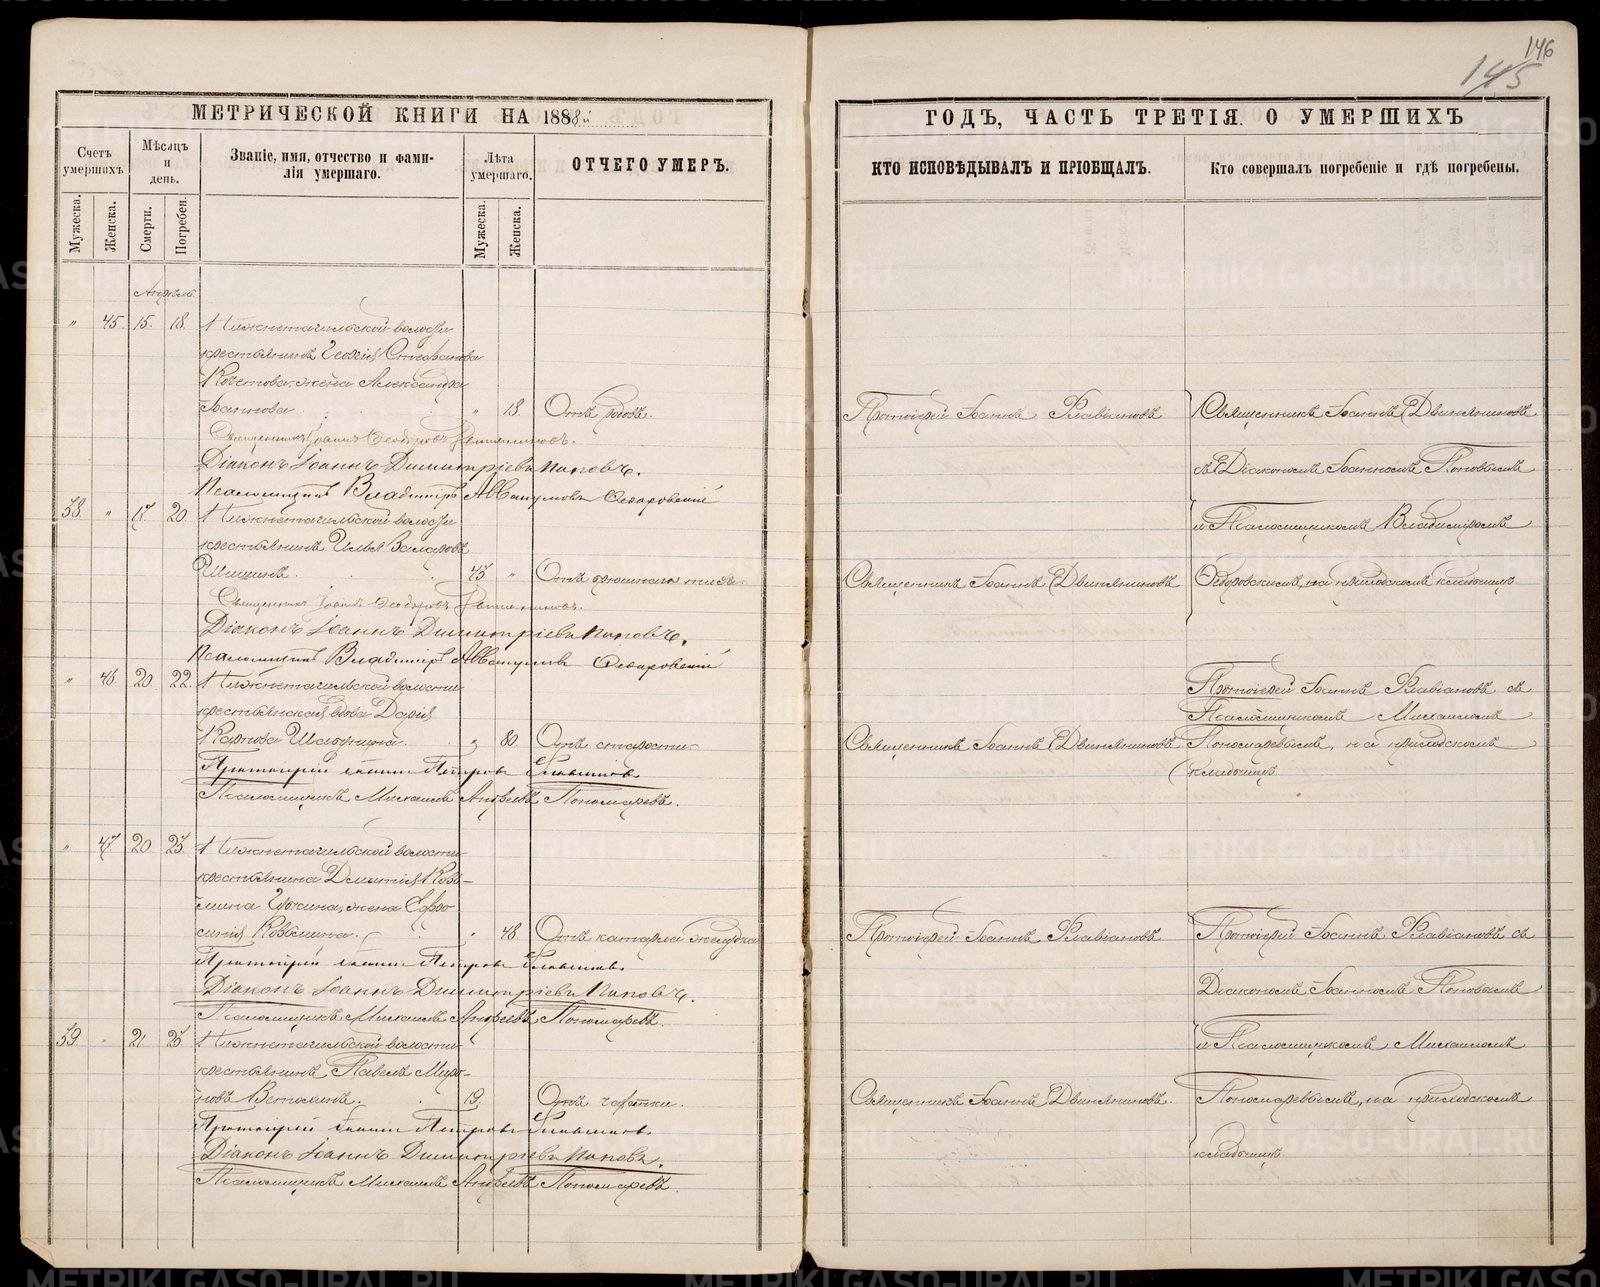 146
145
МЕТРИЧЕСКОЙ КНИГИ НА 1888
ГОДЪ, ЧАСТЬ ТРЕТІЯ. О УМЕРШИХЪ
Счетъ умершихъ.
Мѣсяцъ и день.
Званіе, имя, отчество и фами-
лія умершаго.
Лѣта умершаго.
ОТЧЕГО УМЕРЪ.
КТО ИСПОВѢДЫВАЛЪ И ПРІОБЩАЛЪ.
Кто совершалъ погребеніе и гдѣ погребены.
Мужеска.
Женска.
Смерти.
Погребен.
Мужеска.
Женска.
Апрѣль
" 45. 15. 18. Нижнетагильской волости
крестьянина Георгія Стефанова
жена Александра
Іоаннова " 18. Отъ родовъ. Протоіерей Іоаннъ Флавіановъ Священникъ Іоаннъ Двиняниновъ
Священникъ Іоаннъ Ѳеодоровъ Двиняниновъ.
Діаконъ Іоаннъ Димитріевъ Поповъ. съ Діакономъ Іоанномъ Поповымъ
Псаломщикъ Владиміръ Аввакумовъ
38. " 17. 20. Нижнетагильской волости и Псаломщикомъ Владиміромъ
крестьянинъ Илья
Шишинъ. "  Отъ Священникъ Іоаннъ Двиняниновъ на приходскомъ кладбищѣ
Священникъ Іоаннъ Ѳеодоровъ Двиняниновъ.
Діаконъ Іоаннъ Димитріевъ Поповъ.
Псаломщикъ Владиміръ Аввакумовъ
" 46. 20. 22. Нижнетагильской волости Протоіерей Іоаннъ Флавіановъ съ
крестьянская вдова Дарія Псаломщикомъ Михаиломъ
Карпова " 80. Отъ старости. Священникъ Іоаннъ Двиняниновъ Пономаревымъ, на приходскомъ
Протоіерей Іоаннъ Петровъ Флавіановъ кладбищѣ
Псаломщикъ Михаилъ Андреевъ Пономаревъ.
" 47. 20. 23. Нижнетагильской волости
крестьянина Дмитрія Козь-
мина жена Евфро-
синія Козьмина. " 48. Отъ катарра желудка Протоіерей Іоаннъ Флавіановъ Протоіерей Іоаннъ Флавіановъ съ
Протоіерей Іоаннъ Петровъ Флавіановъ.
Діаконъ Іоаннъ Димитріевъ Поповъ. Діакономъ Іоанномъ Поповымъ
Псаломщикъ Михаилъ Андреевъ Пономаревъ.
39. " 21. 23. Нижнетагильской волости и Псаломщикомъ Михаиломъ
крестьянинъ Павелъ Миро-
новъ 19. Отъ чахотки. Священникъ Іоаннъ Двиняниновъ. Пономаревымъ, на приходскомъ
Протоіерей Іоаннъ Петровъ Флавіановъ
Діаконъ Іоаннъ Димитріевъ Поповъ. кладбищѣ
Псаломщикъ Михаилъ Андреевъ Пономаревъ.
METRIKI.GASO-URAL.RU